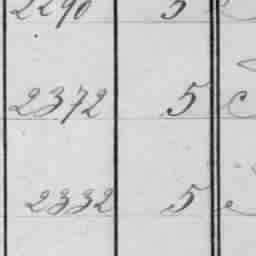 2290 5
2372 5
2332 5